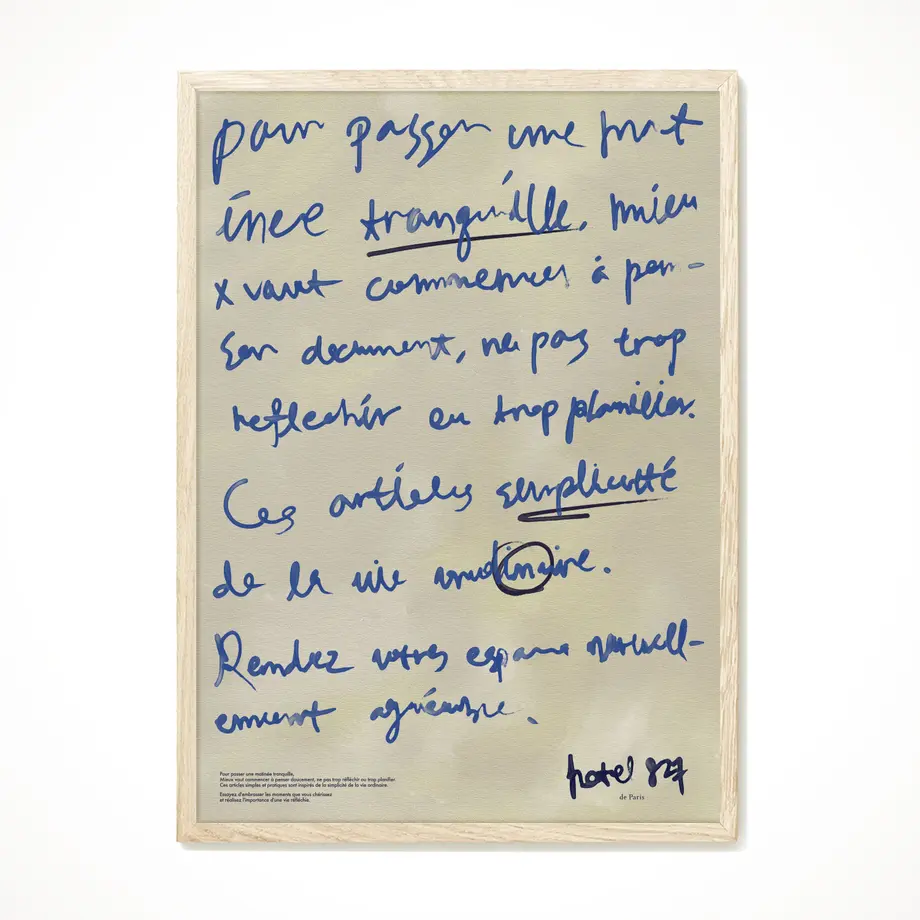 pour passer une mat
inee tranquille. Mieu
x vaut commencer à pen-
ser doucement, ne pas trop
reflechir ou trop planifier.
Ces articles simplicité
de la vie ordinaire.
Rendez votres espace naturell-
ement agréable.
hotel 827
de Paris
Pour passer une matinée tranquille,
Mieux vaut commencer à penser doucement, ne pas trop réfléchir ou trop planifier.
Ces articles simples et pratiques sont inspirés de la simplicité de la vie ordinaire.
Essayez d'embrasser les moments que vous chérissez
et réalisez l'importance d'une vie réfléchie.